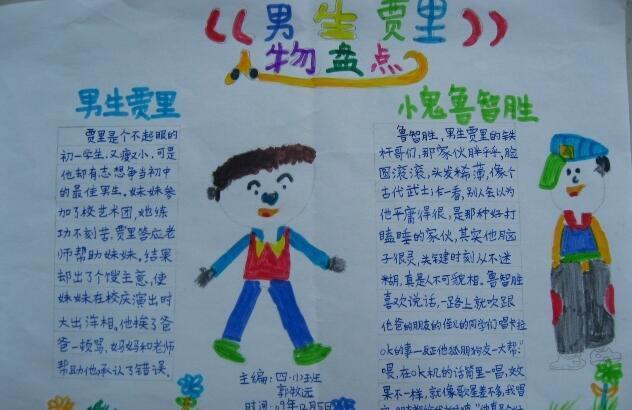 《男生贾里》
人物盘点
男生贾里
贾里是个不起眼的
初一学生.又瘦又小,可是
他却有志想争当初中
的最佳男生.妹妹参
加了校艺术团,她练
功不刻苦.贾里答应老
师帮助妹妹,结果
却出了个馊主意,使
妹妹在校庆演出时
大出洋相.他挨了爸
爸一顿骂,妈妈和老师
帮助他,承认了错误.
主编:四.(1)班
郭牧远
时间:09年12月5日
小鬼鲁智胜
鲁智胜,男生贾里的铁
杆哥们,那家伙胖乎乎,脸
圆滚滚,头发稀薄,像个
古代武士.乍一看,别人会以为
他平庸得很,是那种好打
瞌睡的家伙,其实他脑
子很灵,关键时刻从不迷
糊,真是人不可貌相.鲁智胜
喜欢说话,一路上就吹跟
他爸的朋友的侄儿的同学们唱卡拉
ok的事一反正他狐朋狗友一大帮:"
喂,在ok机的话筒里一唱,效
果不一样,就像歌星差不多,我唱